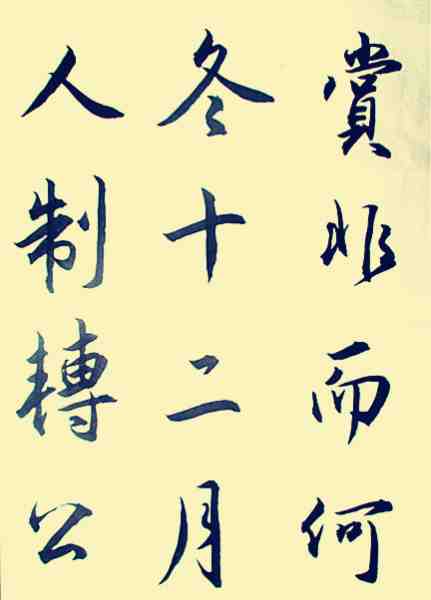 賞非而何
冬十二月
人制轉公